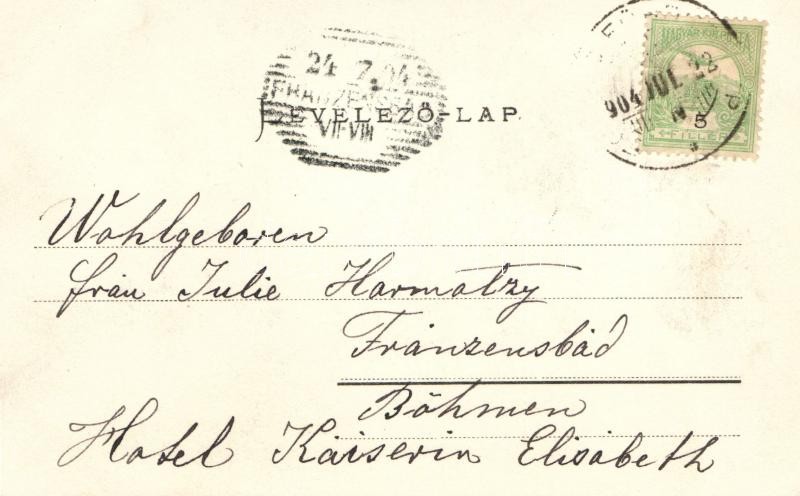 MAGYAR KIR. POSTA
24 7 04
904 JUL 22
FRANZENSBAD
VII-VIII
LEVELEZŐ-LAP
5
FILLÉR
Wohlgeboren
frau Julie Harmatzy
Fránzensbád
Böhmen
Hotel Kaiserin Elisábeth